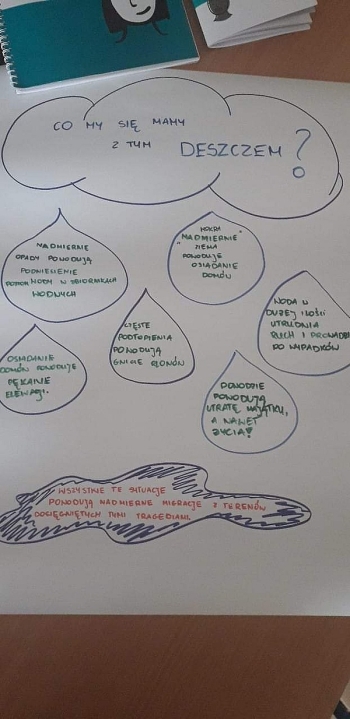 CO MY SIĘ MAMY
Z TYM DESZCZEM?
NADMIERNE
OPADY POWODUJĄ
PODNIESIENIE
POZIOMU WODY W ZBIORNIKACH
WODNYCH
MOKRA
"NADMIERNIE"
ZIEMIA
POWODUJE
OSIADANIE
DOMÓW
WODA W
DUŻEJ ILOŚCI
UTRUDNIA
RUCH I PROWADZI
DO WYPADKÓW
CZĘSTE
PODTOPIENIA
POWODUJĄ
GNICIE PLONÓW
OSIADANIE
DOMÓW POWODUJE
PĘKANIE
ELEWACJI.
POWODZIE
POWODUJĄ
UTRATĘ MAJĄTKU,
A NAWET
ŻYCIA!
WSZYSTKIE TE SYTUACJE
POWODUJĄ NADMIERNE MIGRACJE Z TERENÓW
DOSIĘGNIĘTYCH TYMI TRAGEDIAMI.